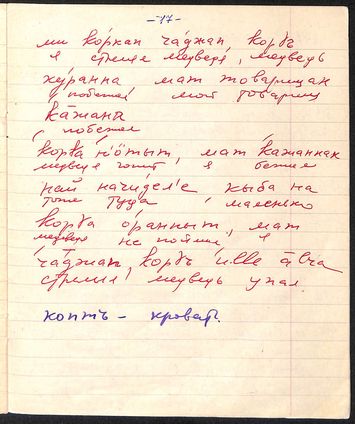 – 17 –
ми ко́ркап ча́джап, корԑъ
я стреляе медведя, медведь
ку́ранна мат товарищак
побежал мой товарищ
ка́жана
побежал
корԑа н'ӧтыт, мат кажаннак
медведя гонит я бежал
най начидел'е кыба на
тоже туда маленько
корԑа о́ранныт, мат
медведя не поймал, я
ча́джап, корԑъ илле а̄лча
стрелял, медведь упал.
коптъ – кровать.